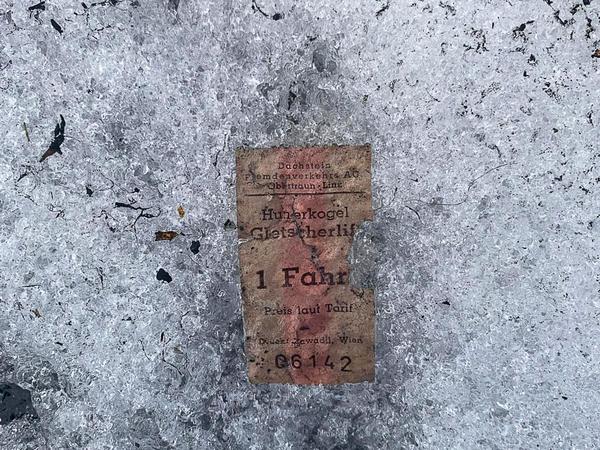 Dachstein
Fremdenverkehrs AG
Obertraun-Linz
Hunerkogel
Gletscherlif
1 Fahr
Preis laut Tarif
Druck: Wien
06142